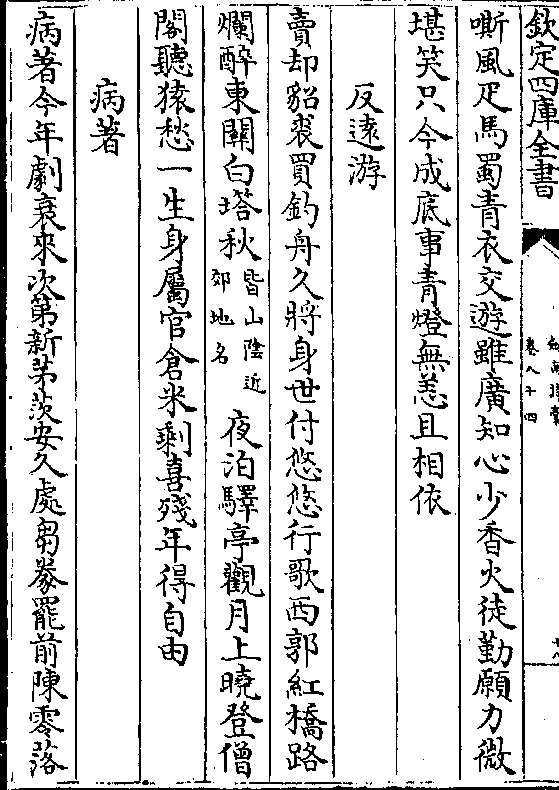 欽定四庫全書
卷八十四
嘶風疋馬蜀青衣交遊雖廣知心少香火徒勤願力微
堪笑只今成底事青燈無恙且相依
反遠游
賣却貂裘買釣舟久將身世付悠悠行歌西郭紅橋路
爛醉東關白塔秋皆山陰近郊地名夜泊驛亭觀月上曉登僧
閣聽猿愁一生身屬官倉米剩喜殘年得自由
病著
病著今年劇衰來次第新茅茨安久處芻豢罷前陳零落